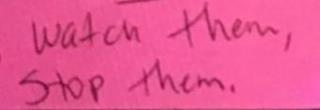 Watch them,
Stop them.